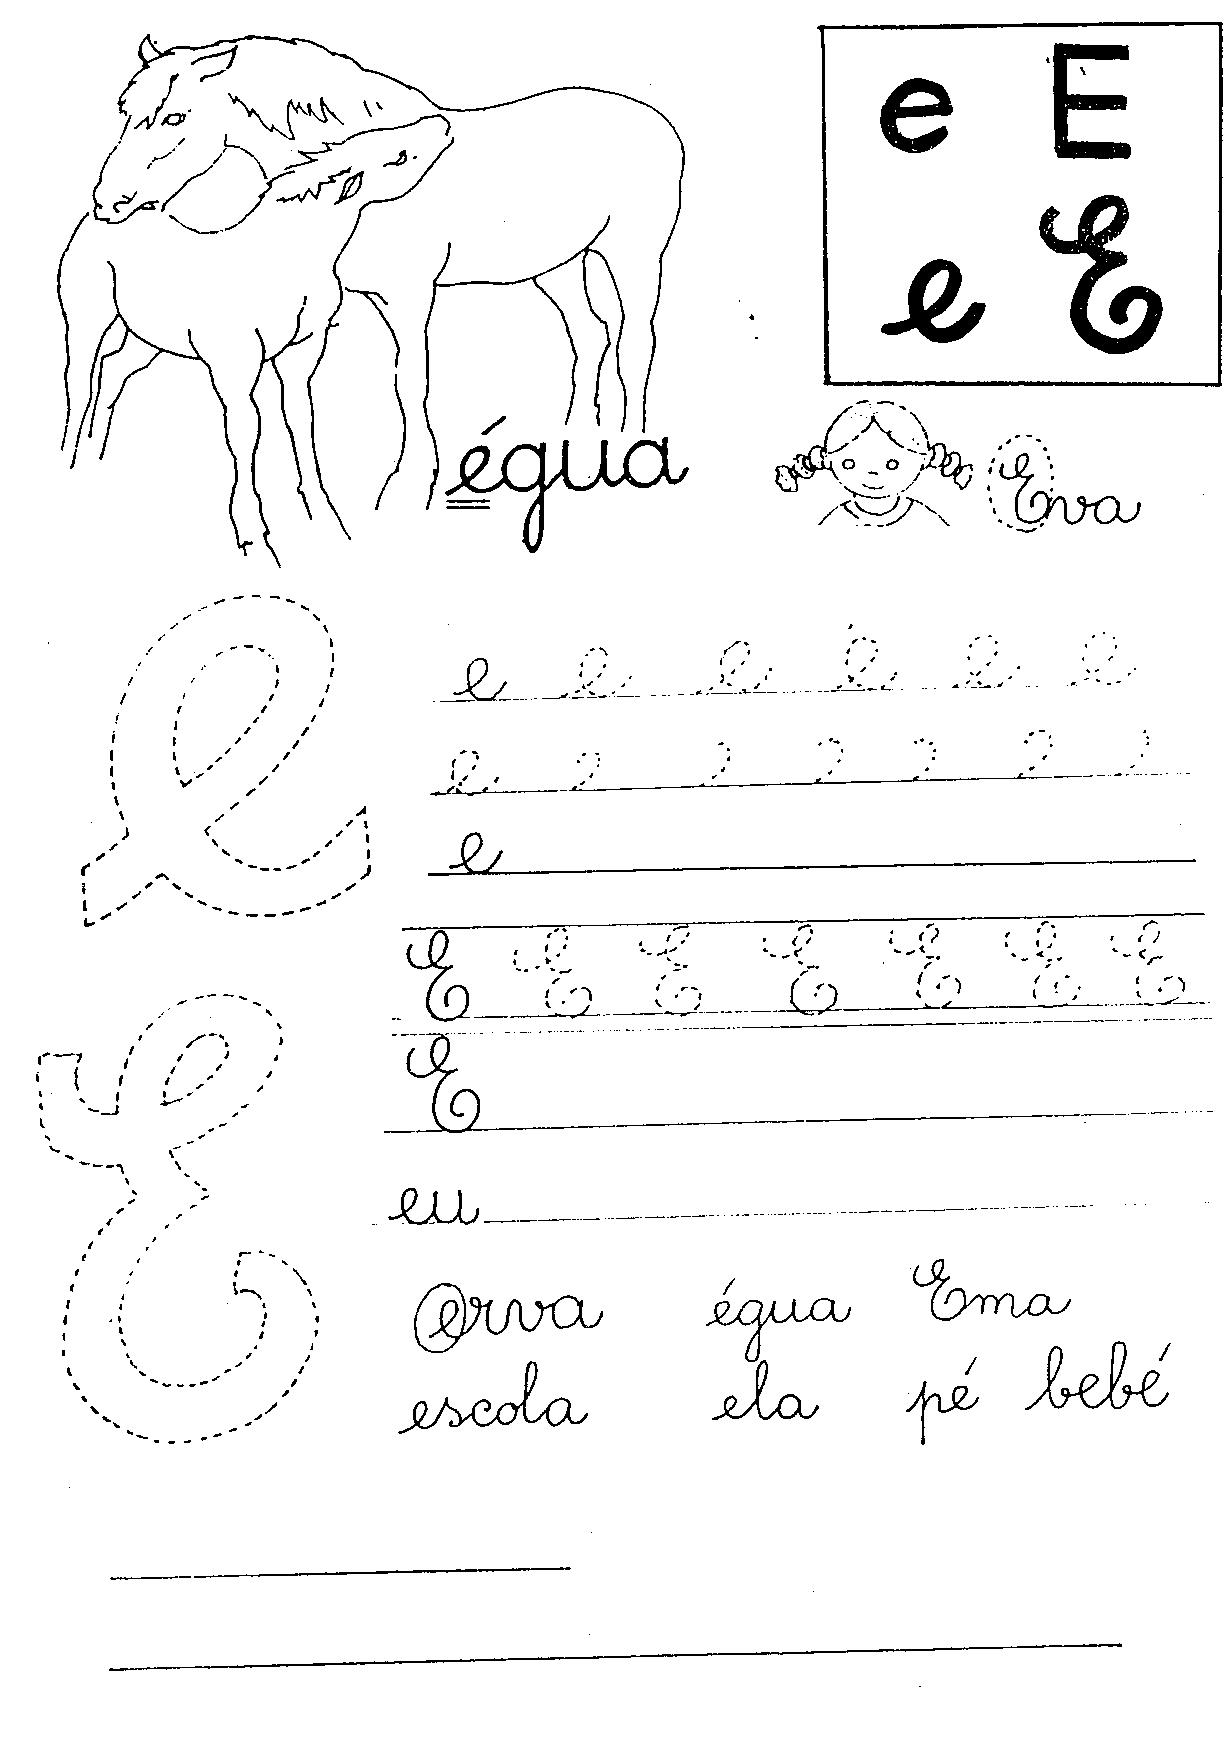 e E
e E
égua
Eva
e e e e e e
e e e e e e e
e
E E E E E E E
E
eu
erva égua Ema
escola ela pé bebé